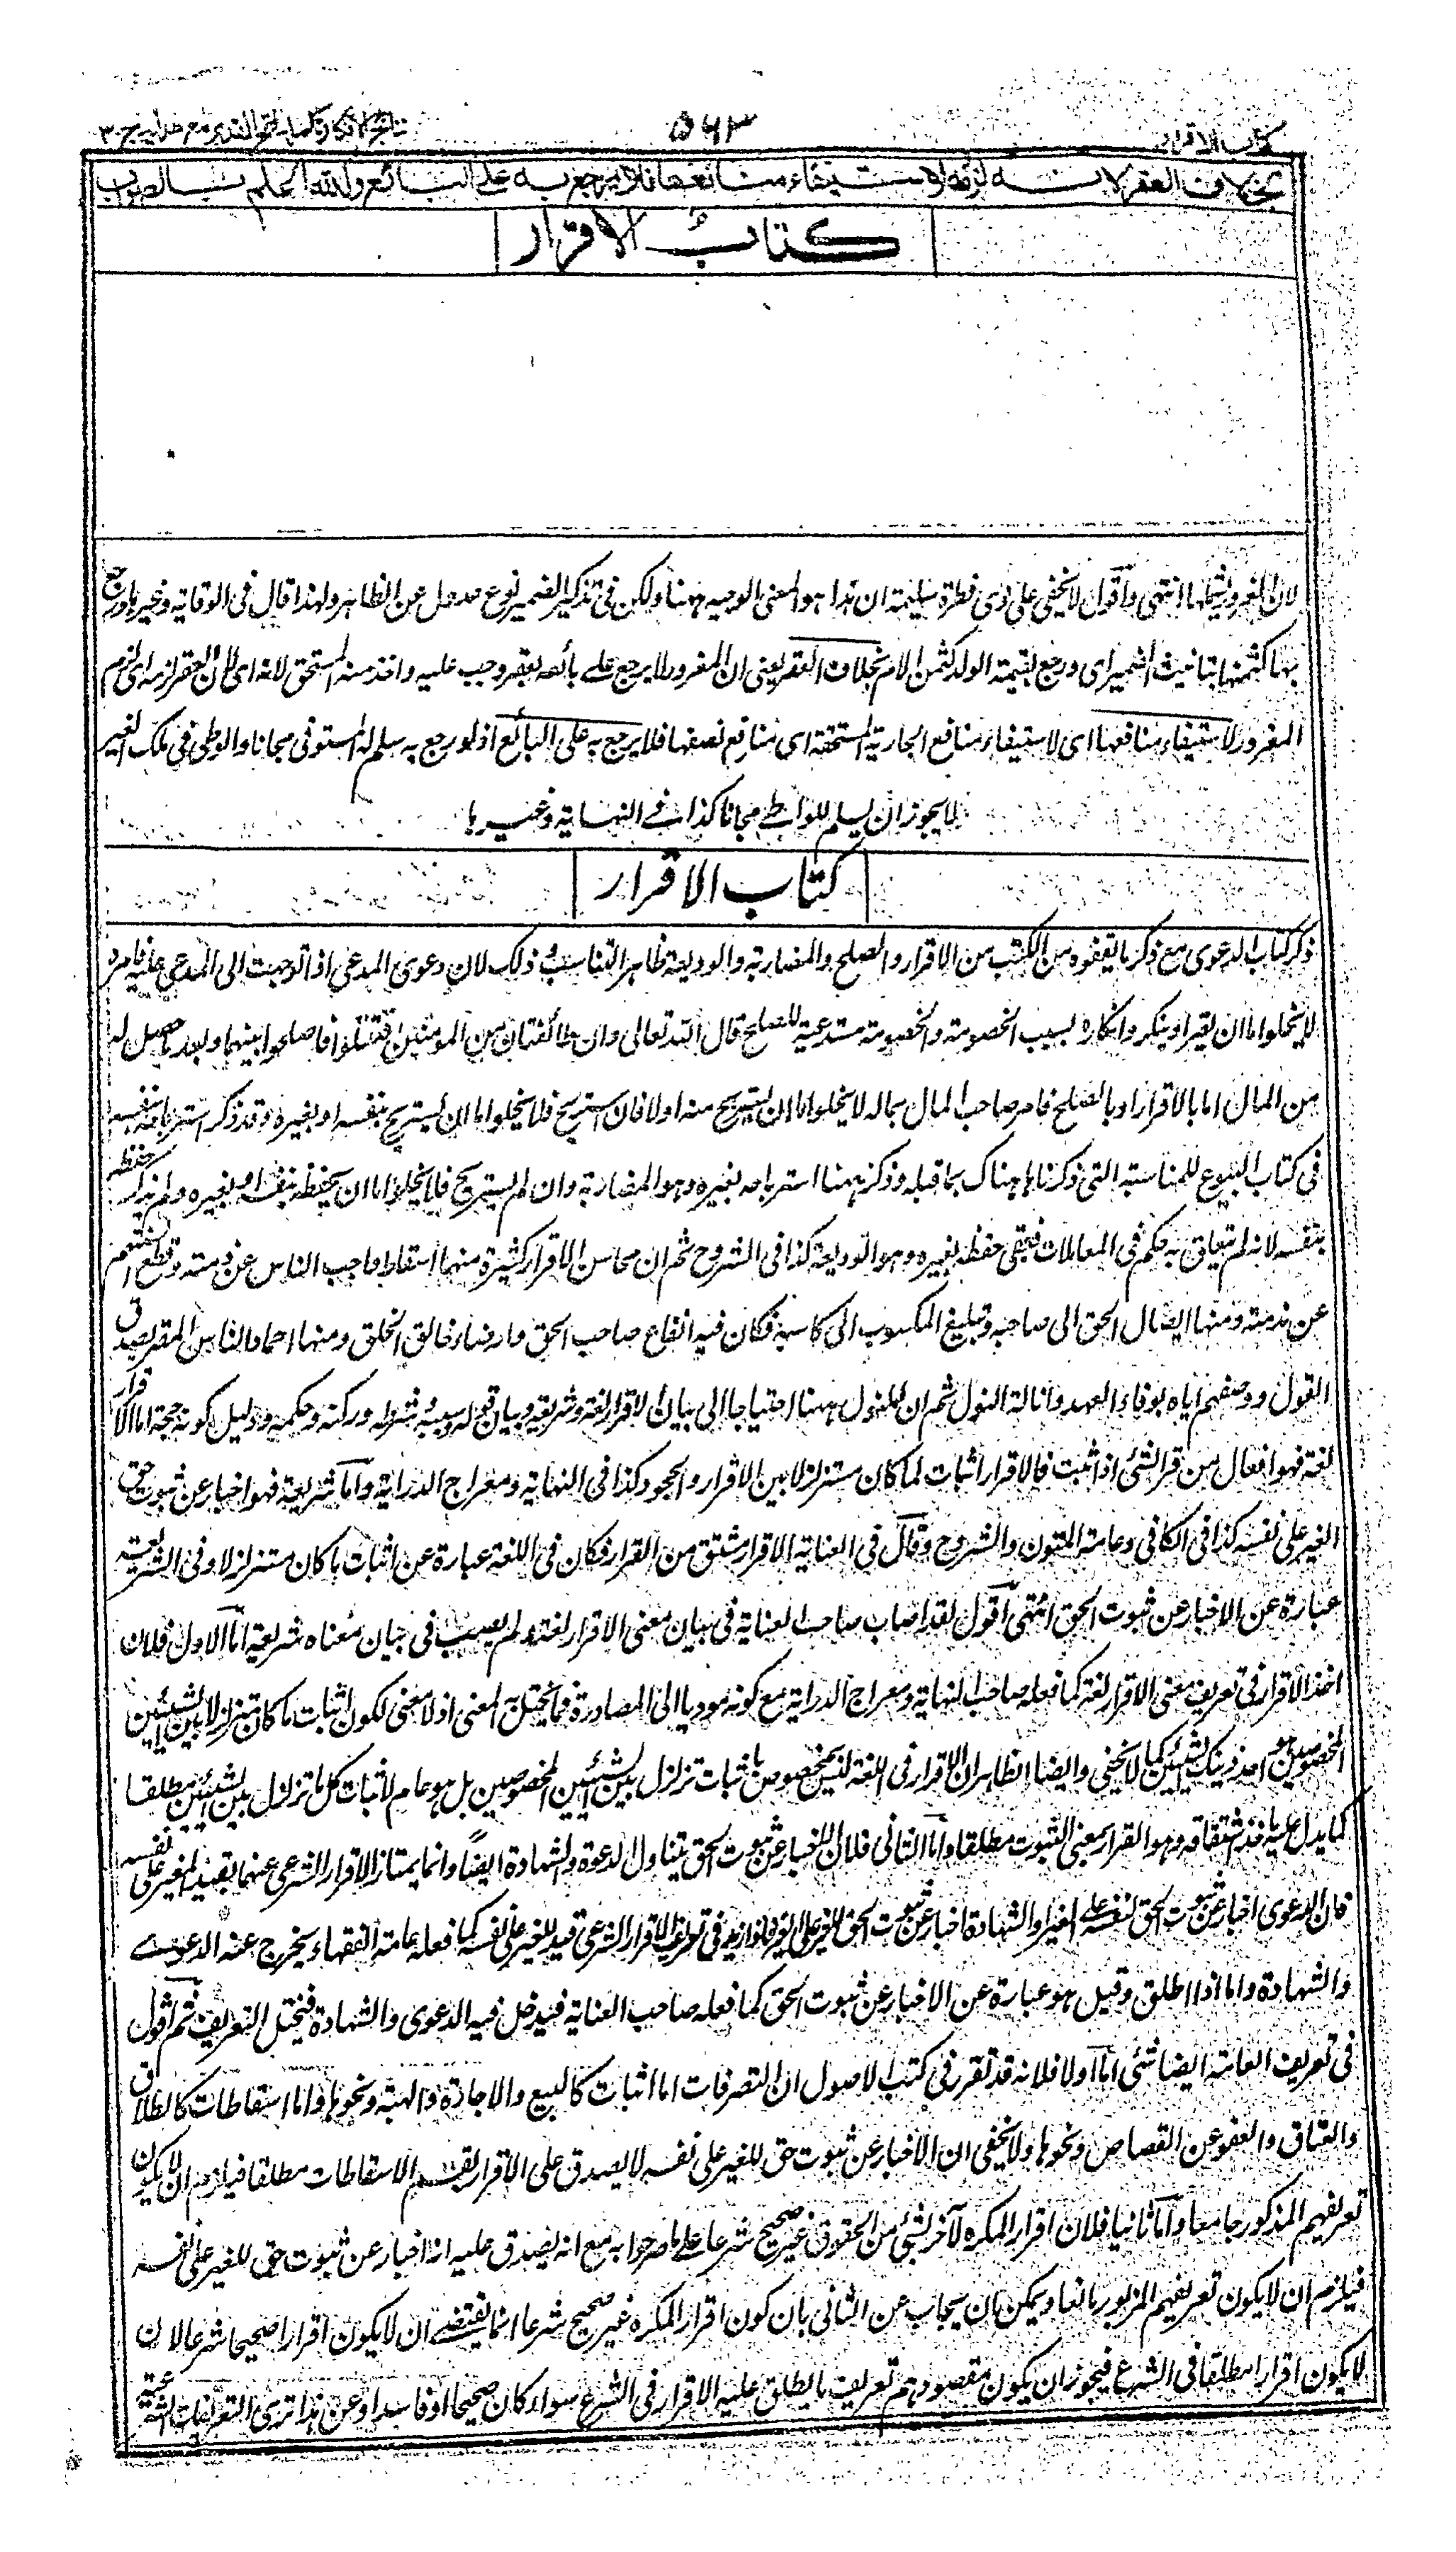 كتاب الاقرار
٥٦٣
نتائج الافكار تكملة فتح القدير مع هداية ج ٣
بخلاف العقر لانه لزمه لاستيفاء منافعها فلا يرجع به على البائع والله اعلم بالصواب
كتاب الاقرار
لان الغرور شملها انتهى واقول لا يخفى على ذى فطرة سليمة ان هذا هو المعنى الوجيه ههنا ولكن فى تذكير الضمير نوع عدول عن الظاهر ولهذا قال فى الوقاية وغيرها ورجع
بها كثمنها بتانيث الضمير اى ورجع بقيمة الولد كثمن الام بخلاف العقر يعنى ان المغرور لا يرجع على بائعه بعقر وجب عليه واخذ منه المستحق لانه اى لان العقر لزمه اى لزم
المغرور لاستيفاء منافعها اى لاستيفاء منافع الجارية المستحقة اى منافع بضعها فلا يرجع به على البائع اذ لو رجع به سلم له المستوفى مجانا والوطى فى ملك الغير
لا يجوز ان يسلم للواطى مجانا كذا فى النهاية وغيرها
كتاب الاقرار
ذكر كتاب الدعوى مع ذكر ما يقفوه من الكتب من الاقرار والصلح والمضاربة والوديعة ظاهر التناسب وذلك لان دعوى المدعى اذا توجهت الى المدعى عليه فامره
لا يخلو اما ان يقر او ينكر وانكاره سبب الخصومة والخصومة مستدعية للصلح قال الله تعالى وان طائفتان من المومنين اقتتلوا فاصلحوا بينهما وبعد ما حصل له
من المال اما بالاقرار او بالصلح فامر صاحب المال بماله لا يخلو اما ان يستربح منه او لا فان استربح فلا يخلو اما ان يستربح بنفسه او بغيره وقد ذكر استرباحه بنفسه
فى كتاب البيوع للمناسبة التى ذكرناها هناك بما قبله وذكر ههنا استرباحه بغيره وهو المضاربة وان لم يستربح فلا يخلو اما ان يحفظه بنفسه او بغيره ولم يذكر حفظه
بنفسه لانه لم يتعلق به حكم فى المعاملات فبقى حفظه بغيره وهو الوديعة كذا فى الشروح ثم ان محاسن الاقرار كثيرة منها اسقاط واجب الناس عن ذمته وقطع السنتهم
عن مذمته ومنها ايصال الحق الى صاحبه وتبليغ المكسوب الى كاسبه فكان فيه انفاع صاحب الحق وارضاء خالق الخلق ومنها احماد الناس المقر بصدق
القول ووصفهم اياه بوفاء العهد وانالة النول ثم ان للقول ههنا احتياجا الى بيان الاقرار لغة وشريعة وبيان سببه وشرطه وركنه وحكمه ودليل كونه حجة اما الاقرار
لغة فهو افعال من قر الشئ اذا ثبت فالاقرار اثبات لما كان متزلزلا بين الاقرار والجحود كذا فى النهاية ومعراج الدراية واما شريعة فهو اخبار عن ثبوت حق
الغير على نفسه كذا فى الكافى وعامة المتون والشروح وقال فى العناية الاقرار مشتق من القرار فكان فى اللغة عبارة عن اثبات ما كان متزلزلا وفى الشريعة
عبارة عن الاخبار عن ثبوت الحق انتهى اقول لقد اصاب صاحب العناية فى بيان معنى الاقرار لغة ولم يصب فى بيان معناه شريعة اما الاول فلان
اخذ الاقرار فى تعريف معنى الاقرار لغة كما فعله صاحب النهاية ومعراج الدراية مع كونه موديا الى المصادرة مما يختل به المعنى اذ لا معنى لكون اثبات ما كان متزلزلا بين الشيئين
المخصوصين هو احد ذينك الشيئين كما لا يخفى وايضا الظاهر ان الاقرار فى اللغة ليس بمخصوص باثبات تزلزل بين الشيئين المخصوصين بل هو عام لاثبات كل ما تزلزل بين الشيئين مطلقا
كما يدل عليه ماخذ اشتقاقه وهو القرار بمعنى الثبوت مطلقا واما الثانى فلان الاخبار عن ثبوت الحق يتناول الدعوة والشهادة ايضا وانما يمتاز الاقرار الشرعى عنهما بقيد للغير على نفسه
فان الدعوى اخبار عن ثبوت الحق لنفسه على الغير والشهادة اخبار عن ثبوت الحق للغير على الغير فلو ازيد فى تعريف الاقرار الشرعى قيد للغير على نفسه كما فعله عامة الفقهاء يخرج عنه الدعوى
والشهادة واما اذا اطلق وقيل هو عبارة عن الاخبار عن ثبوت الحق كما فعله صاحب العناية فيدخل فيه الدعوى والشهادة فيختل التعريف ثم اقول
فى تعريف العامة ايضا شئ اما اولا فلانه قد تقرر فى كتب الاصول ان التصرفات اما اثبات كالبيع والاجارة والهبة ونحوها واما اسقاطات كالطلاق
والعتاق والعفو عن القصاص ونحوها ولا يخفى ان الاخبار عن ثبوت حق للغير على نفسه لا يصدق على الاقرار بقسم الاسقاطات مطلقا فيلزم ان لا يكون
تعريفهم المذكور جامعا واما ثانيا فلان اقرار المكره لآخر بشئ من الحقوق غير صحيح شرعا على ما صرحوا به مع انه يصدق عليه انه اخبار عن ثبوت حق للغير على نفسه
فيلزم ان لا يكون تعريفهم المزبور مانعا ويمكن ان يجاب عن الثانى بان كون اقرار المكره غير صحيح شرعا انما يقتضى ان لا يكون اقرارا صحيحا شرعا لا ان
لا يكون اقرارا مطلقا فى الشرع فيجوز ان يكون مقصودهم تعريف ما يطلق عليه الاقرار فى الشرع سواء كان صحيحا او فاسدا وعن هذا ترى التعريفات